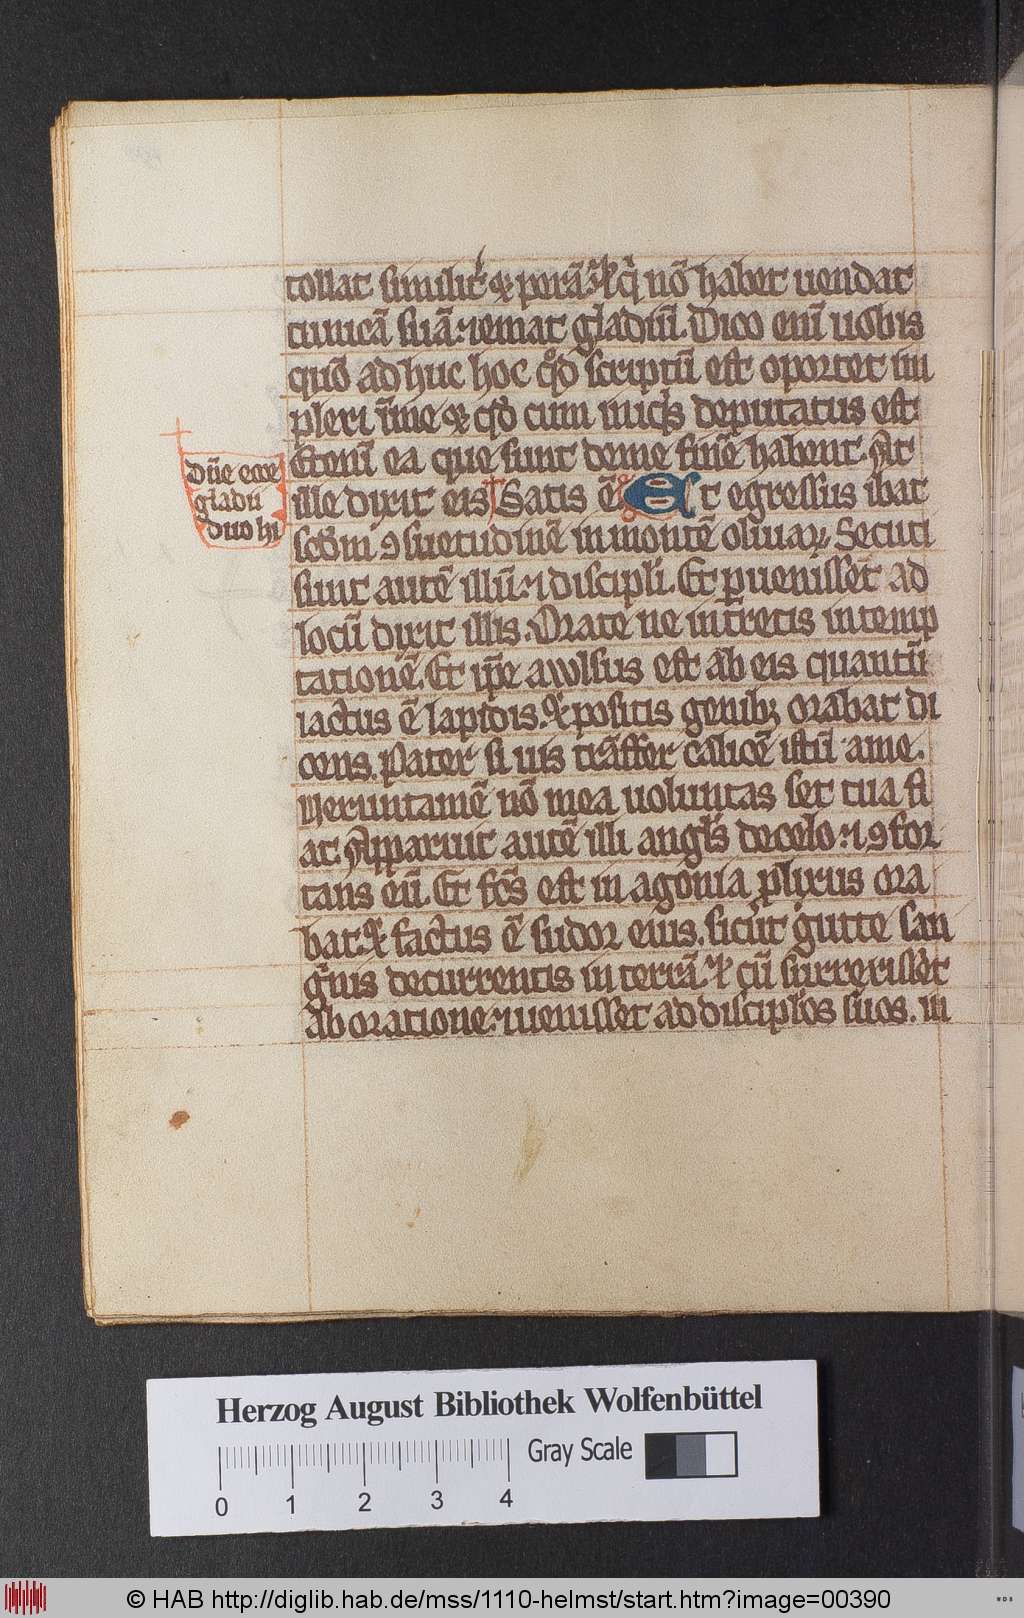 tollat similit᷑ ⁊ perā. ⁊ qͥ nō habet uendat
tunicā suā. ⁊ emat gladiū. Dico eni̅ uobis
quō adhuc hoc qͦd scriptū est oportet im
pleri ī me ⁊ qͦd cum iniqͥs deputatus est
Eteni̅ ea que sunt de me finē habent. At
dn̄e ecce
gladii
duo hi
ille dixit eis Satis ē Et egressus ibat
scd̄m ꝯsuetudinē in montē oliuaꝝ. Secuti
sunt autē illū. ⁊ discipli. Et ꝑuenisset ad
locū dixit illis. Orate ne intretis in temp
tationē. Et ip̄e awlsus est ab eis quantū
iactus ē lapidis. ⁊ positis genibꝫ orabat di
cens. Pater si uis trāsfer calicē istū a me.
Veruntamē nō mea uoluntas set tua fi
at. Apparuit autē illi angl̄s de celo. ⁊ ꝯfor
tans eū. Et fc̄s est in agonia ꝓlixius ora
bat. ⁊ factus ē sudor eius. sicut gutte san
gͥuis decurrentis in terrā. ⁊ cū surrexisset
ab oratione. ⁊ uenisset ad discipl̄os suos. in
Herzog August Bibliothek Wolfenbüttel
Gray Scale
0 1 2 3 4
© HAB http://diglib.hab.de/mss/1110-helmst/start.htm?image=00390